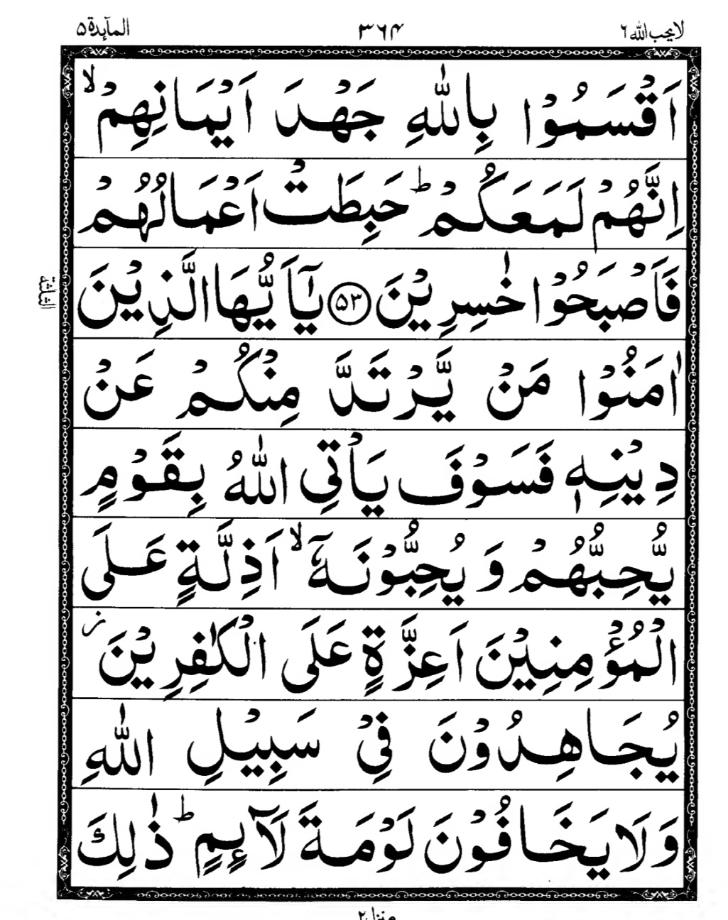 لا يحب الله ٦
٣٦٤
المآىدة ٥
اَقْسَمُوْا بِاللّٰهِ جَهْدَ اَيْمَانِهِمْ ۙ
اِنَّهُمْ لَمَعَكُمْ ؕ حَبِطَتْ اَعْمَالُهُمْ
فَاَصْبَحُوْا خٰسِرِيْنَ ﴿۵۳﴾ يٰۤاَيُّهَا الَّذِيْنَ
الثلثة
اٰمَنُوْا مَنْ يَّرْتَدَّ مِنْكُمْ عَنْ
دِيْنِهٖ فَسَوْفَ يَاْتِي اللّٰهُ بِقَوْمٍ
يُّحِبُّهُمْ وَ يُحِبُّوْنَهٗۤ ۙ اَذِلَّةٍ عَلَى
الْمُؤْمِنِيْنَ اَعِزَّةٍ عَلَى الْكٰفِرِيْنَ ؗ
يُجَاهِدُوْنَ فِيْ سَبِيْلِ اللّٰهِ
وَلَا يَخَافُوْنَ لَوْمَةَ لَآىِٕمٍ ؕ ذٰلِكَ
منزل ۲